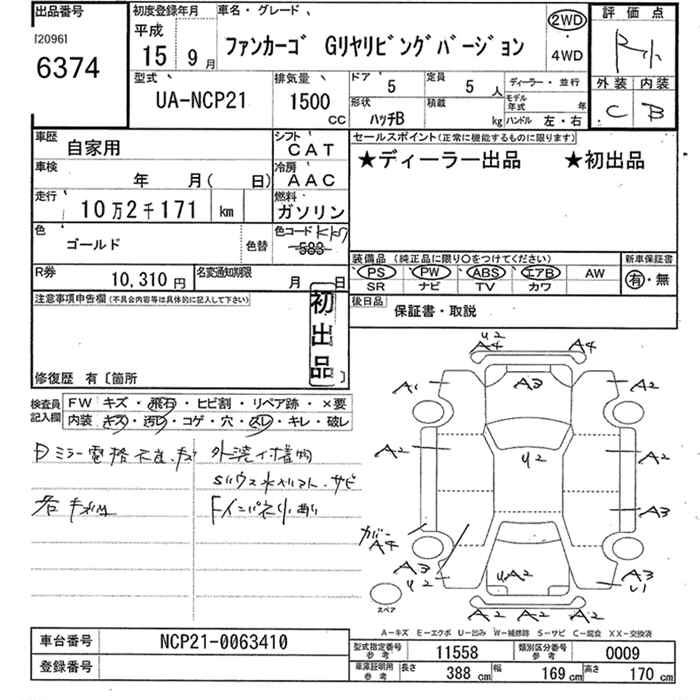 出品番号
120961
6374
初度登録年月
平成
15年 9月
車名・グレード
ファンカーゴ Gリヤリビングバージョン
2WD
・
4WD
評価点
R小
外装 内装
C B
型式
UA-NCP21
排気量
1500 cc
ドア 5
定員 5人
ディーラー・並行
形状 ハッチB
積載 kg
モデル年式 年
ハンドル 左・右
車歴 自家用
シフト CAT
車検 年 月( 日)
冷房 AAC
走行 10万2千171 km
燃料 ガソリン
色 ゴールド
色替
色コード 583
R券 10,310円
名変通知期限 月 日
セールスポイント(正常に機能するものに限ります)
★ディーラー出品 ★初出品
装備品(純正品に限り○をつけてください)
PS PW ABS エアB AW
SR ナビ TV カワ
新車保証書
有・無
後日品 保証書・取説
注意事項申告欄(不具合内容等は具体的に記入して下さい)
初出品
修復歴 有〔箇所 〕
検査員記入欄
FW キズ・飛石・ヒビ割・リペア跡・×要
内装 キズ・汚レ・コゲ・穴・スレ・キレ・破レ
Dミラー電格不良.キズ
外装イ植物
Sハウス水ベルト.サビ
Fインパネ小
U2
A4 A4
A1 A3 A2
A2 U2 A2
A3
ガバー
A4
A3
U2
UA2
A3
A2 A2 A2
スペア
A-キズ E-エクボ U-凹み W-補修跡 S-サビ C-腐食 XX-交換済
車台番号 NCP21-0063410
登録番号
型式指定番号 参考 11558
類別区分番号 参考 0009
車庫証明用 参考 長さ 388 cm 幅 169 cm 高さ 170 cm